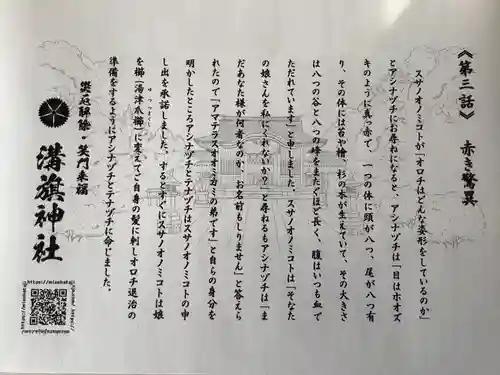 《第三話》 赤き驚異
スサノオノミコトが「オロチはどんな姿形をしているのか」
とアシナヅチにお尋ねになると、アシナヅチは「目はホオズ
キのように真っ赤で、一つの体に頭が八つ、尾が八つ有
り、その体には苔や檜、杉の木が生えていて、その大きさ
は八つの谷と八つの峰をまたぐほど長く、腹はいつも血で
ただれています」と申しました。スサノオノミコトは「そなた
の娘さんを私にくれないか？」と尋ねるもアシナヅチは「ま
だあなた様が何者なのか、お名前もしりません」と答えら
れたので「アマテラスオオミカミの弟です」と自らの身分を
明かしたところアシナヅチとテナヅチはスサノオノミコトの申
し出を承諾しました。するとすぐにスサノオノミコトは娘
を櫛（湯津爪櫛）に変えてご自身の髪に刺しオロチ退治の
ゆつつまぐし
準備をするようにアシナヅチとテナヅチに命じました。
災厄解除・笑門来福
溝旗神社